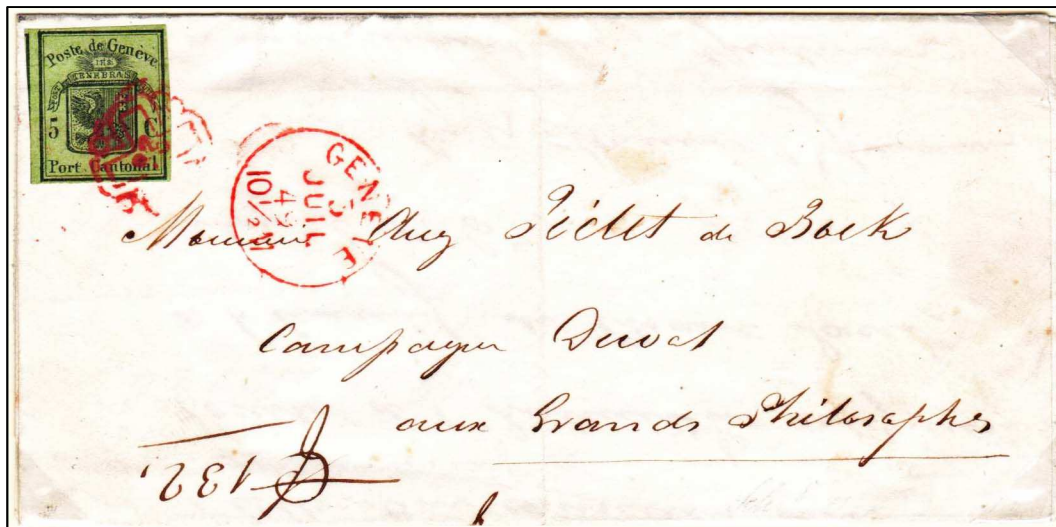 Poste de Genève
POST TENEBRAS
5 C
Port Cantonal
GENEVE
5
JUIL
49
10½ M
Monsieur Aug Pictet de Bock
Campagne Duval
aux Grands Philosophes
132